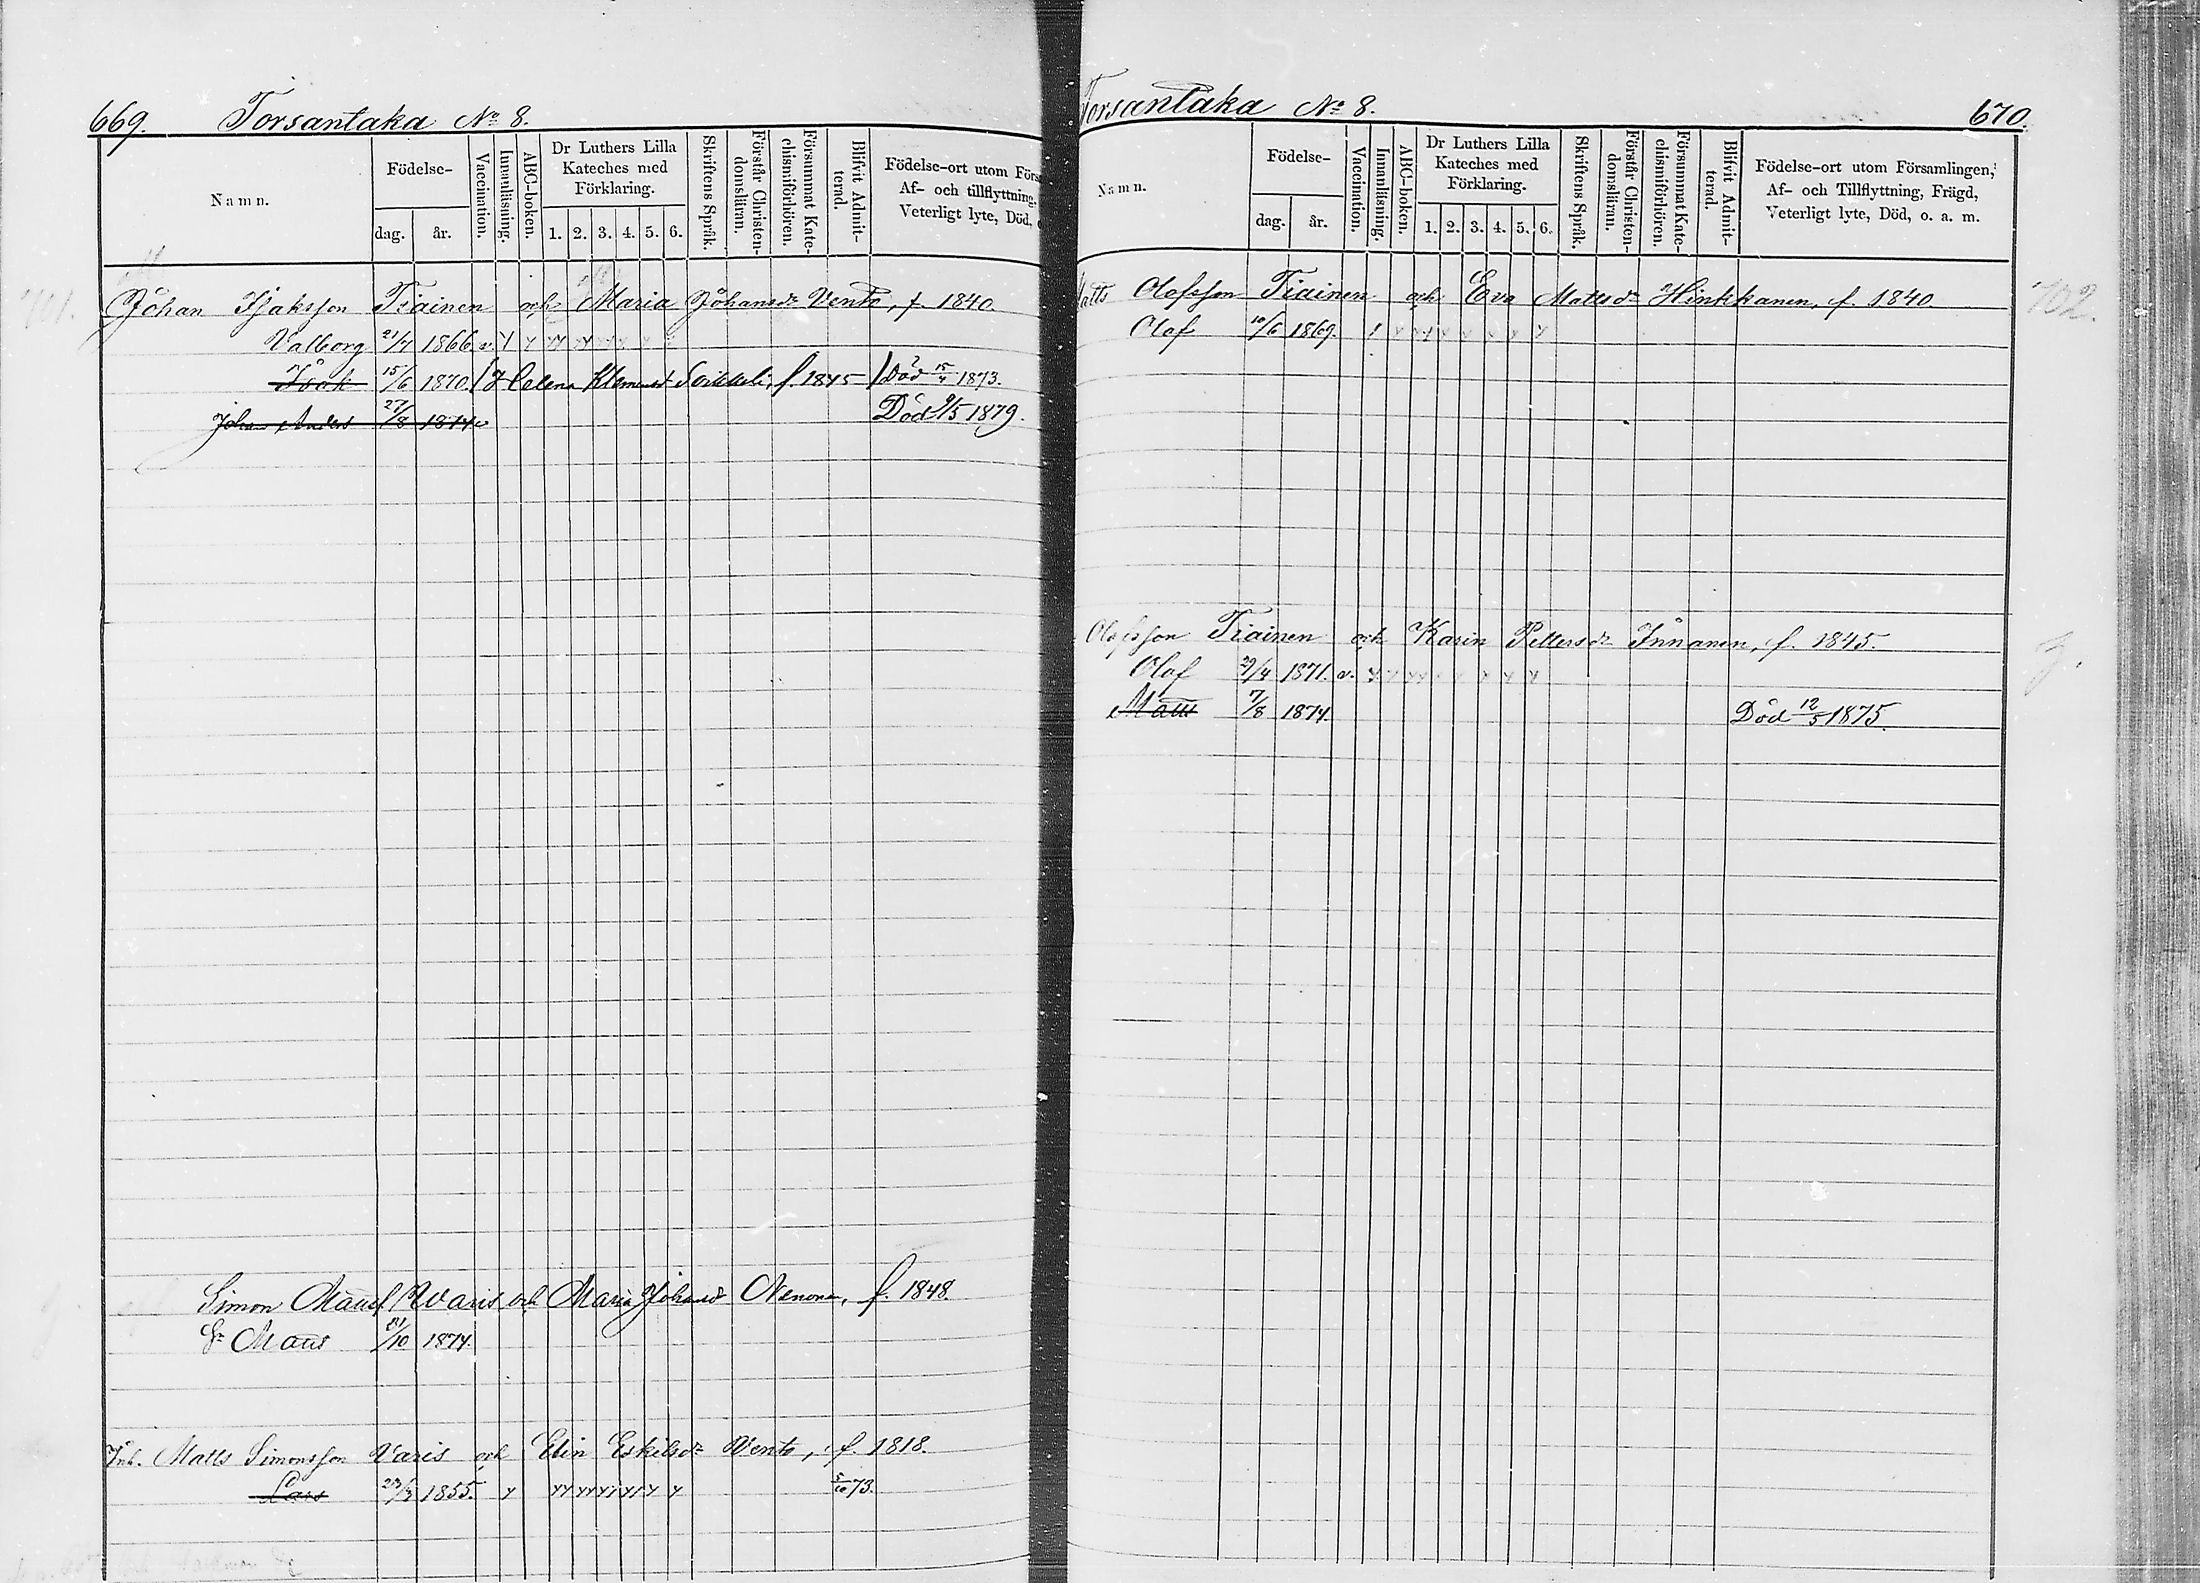 669. Torsantaka No 8.
Namn.
Födelse-
dag. år.
Vaccination.
Innanläsning.
ABC-boken.
Dr Luthers Lilla Kateches med Förklaring.
1. 2. 3. 4. 5. 6.
Skriftens Språk.
Förstår Christen-domsläran.
Försummat Kate-chismiförhören.
Blifvit Admit-terad.
Födelse-ort utom Förs
Af- och tillflyttning,
Veterligt lyte, Död,
701.
Johan Isaksson Tiainen och Maria Johansdr Vento, f. 1840.
Valborg 21/4 1866. v. y y yy
Isak 15/6 1870. / Helena Klemensd Soikkeli, f. 1845 / Död 15/4 1873.
Johan Anders 27/8 1874 v Död 9/5 1879.
Simon Matts Waris och Maria Johansd Nenonen, f. 1848.
Sn Matts /10 1874.
Inh. Matts Simonsson Varis och Elin Eskilsdr Vento, f. 1818.
Lars 1855. y yy yy yy y y y 5/10 73.
Torsantaka No 8. 670.
Namn.
Födelse-
dag. år.
Vaccination.
Innanläsning.
ABC-boken.
Dr Luthers Lilla Kateches med Förklaring.
1. 2. 3. 4. 5. 6.
Skriftens Språk.
Förstår Christen-domsläran.
Försummat Kate-chismiförhören.
Blifvit Admit-terad.
Födelse-ort utom Församlingen,
Af- och Tillflyttning, Frägd,
Veterligt lyte, Död, o. a. m.
Matts Olofsson Tiainen och Eva Mattsdr Hinkkanen, f. 1840 702.
Olof 10/6 1869.
Olofsson Tiainen och Karin Pettersdr Innanen, f. 1845.
Olof 29/4 1871. v.
Matts 7/8 1874. Död 12/5 1875.